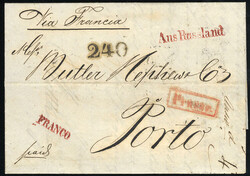 Via Francia
240
Aus Russland
Mess
Butler Nephew & Co
Prussr.
Porto
FRANCO
paid